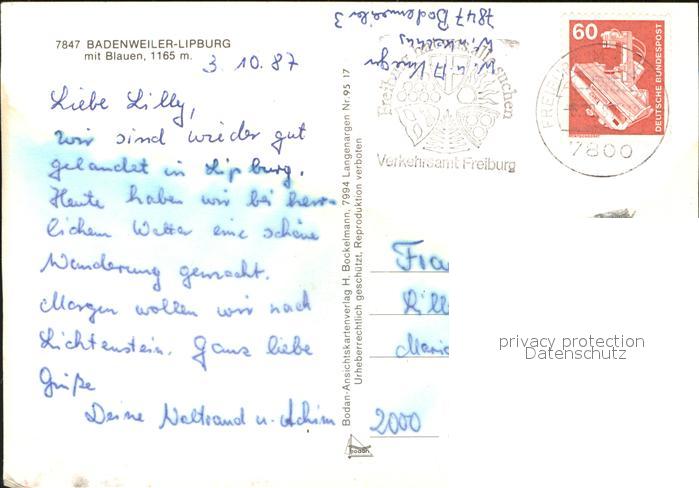 7847 BADENWEILER-LIPBURG
mit Blauen, 1165 m.
3.10.87
Liebe Lilly,
wir sind wieder gut
gelandet in Lipburg.
Heute haben wir bei herr-
lichem Wetter eine schöne
Wanderung gemacht.
Morgen wollen wir nach
Lichtenstein. Ganz liebe
Grüße
Deine Waltraud u. Achim
Bodan-Ansichtskartenverlag H. Bockelmann, 7994 Langenargen Nr. 95 17
Urheberrechtlich geschützt, Reproduktion verboten
bodan
7847 Badenweiler 3
suchen
Verkehrsamt Freiburg
60
DEUTSCHE BUNDESPOST
7800
Fra
Lill
Mari
2000
privacy protection
Datenschutz